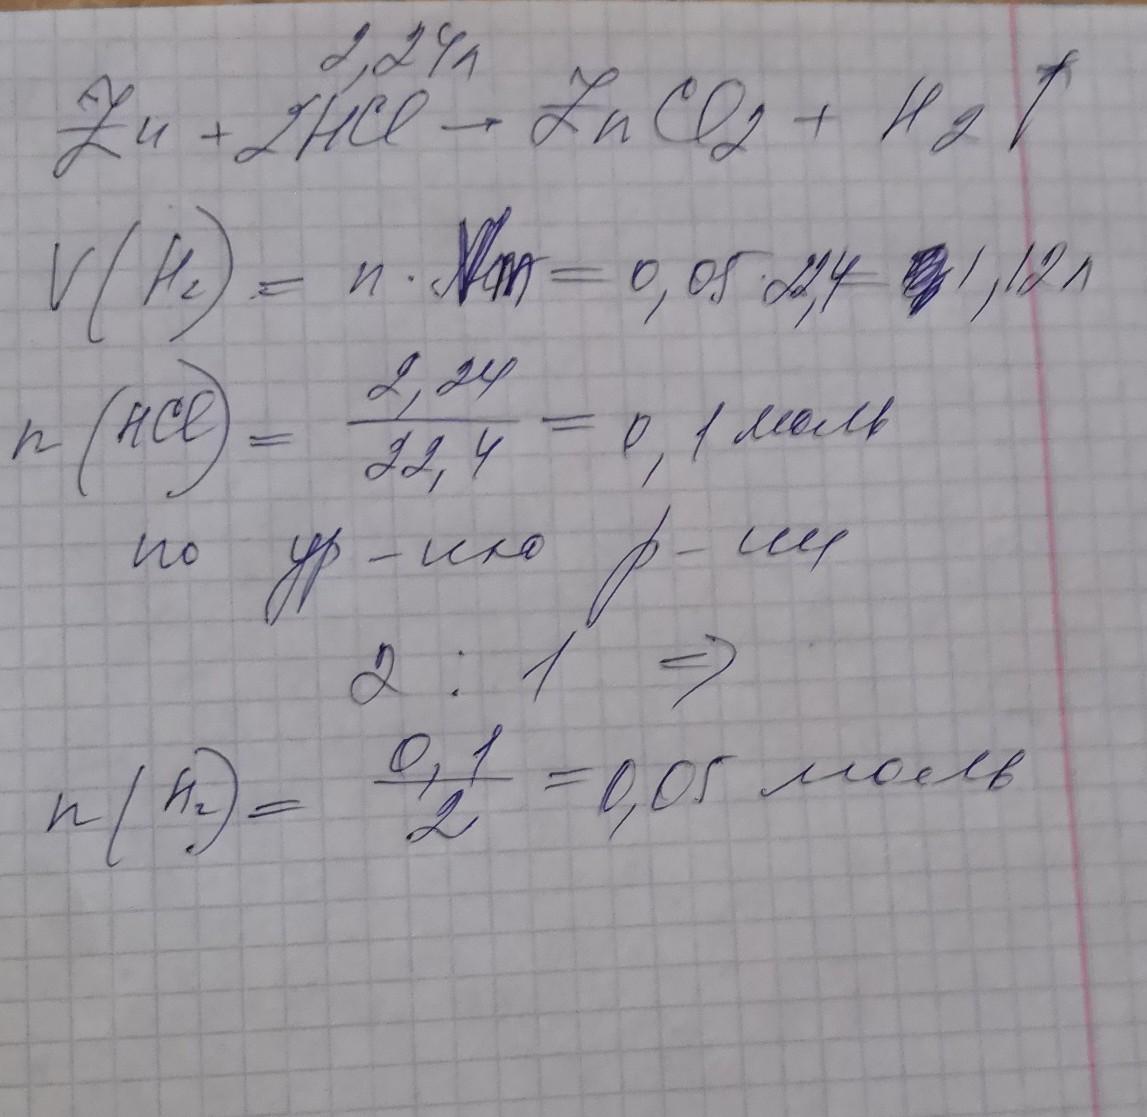 2,24л
Zn + 2HCl → ZnCl2 + H2 ↑
V(H2) = n · Vm = 0,05 · 22,4 = 1,12л
n(HCl) = 2,24 / 22,4 = 0,1 моль
по ур-нию р-ии
2 : 1 ⇒
n(H2) = 0,1 / 2 = 0,05 моль